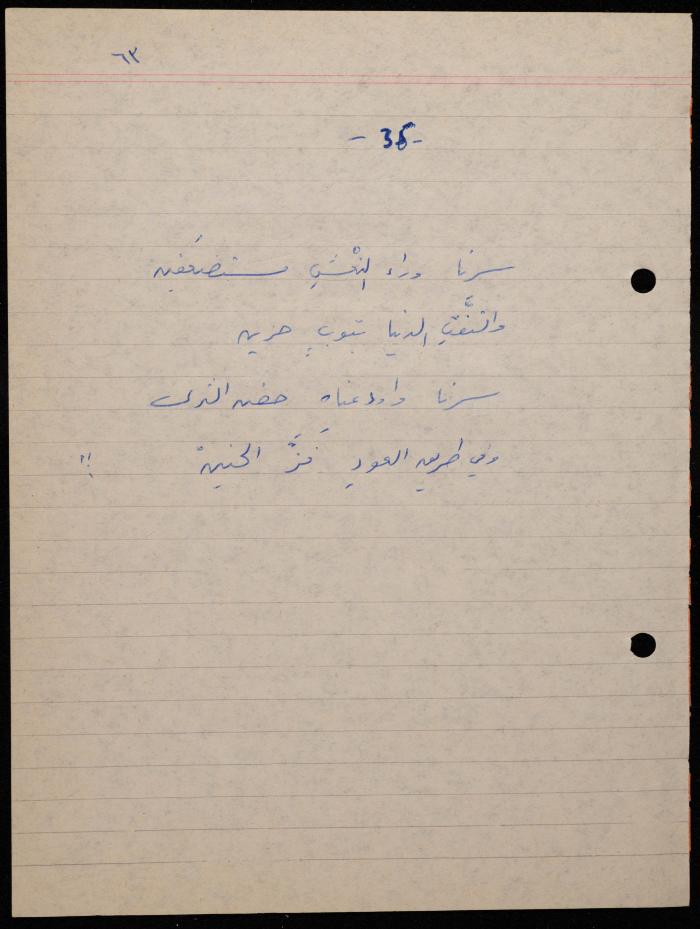 ٦٣
- 35 -
سرنا وراء النعْشِ مستضعَفين
والتفَّتِ الدنيا بثوبٍ حزين
سرنا واودعناه حضن الثرى
وفي طريق العودِ فَزَّ الحنينْ !!